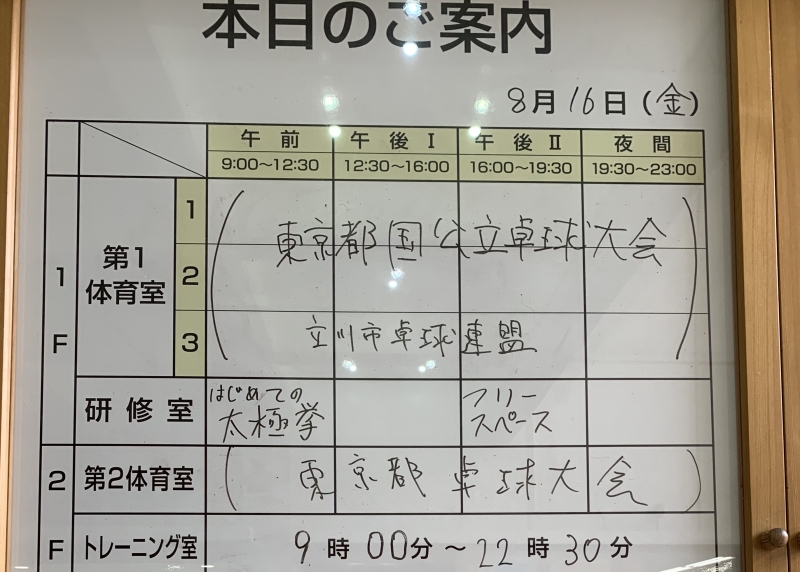 本日のご案内
8月16日(金)
午前 午後Ⅰ 午後Ⅱ 夜間
9:00～12:30 12:30～16:00 16:00～19:30 19:30～23:00
1F
第1体育室
1
2
3
東京都国公立卓球大会
立川市卓球連盟
研修室
はじめての
太極拳
フリー
スペース
2F
第2体育室
(東京都卓球大会)
トレーニング室 9時00分～22時30分